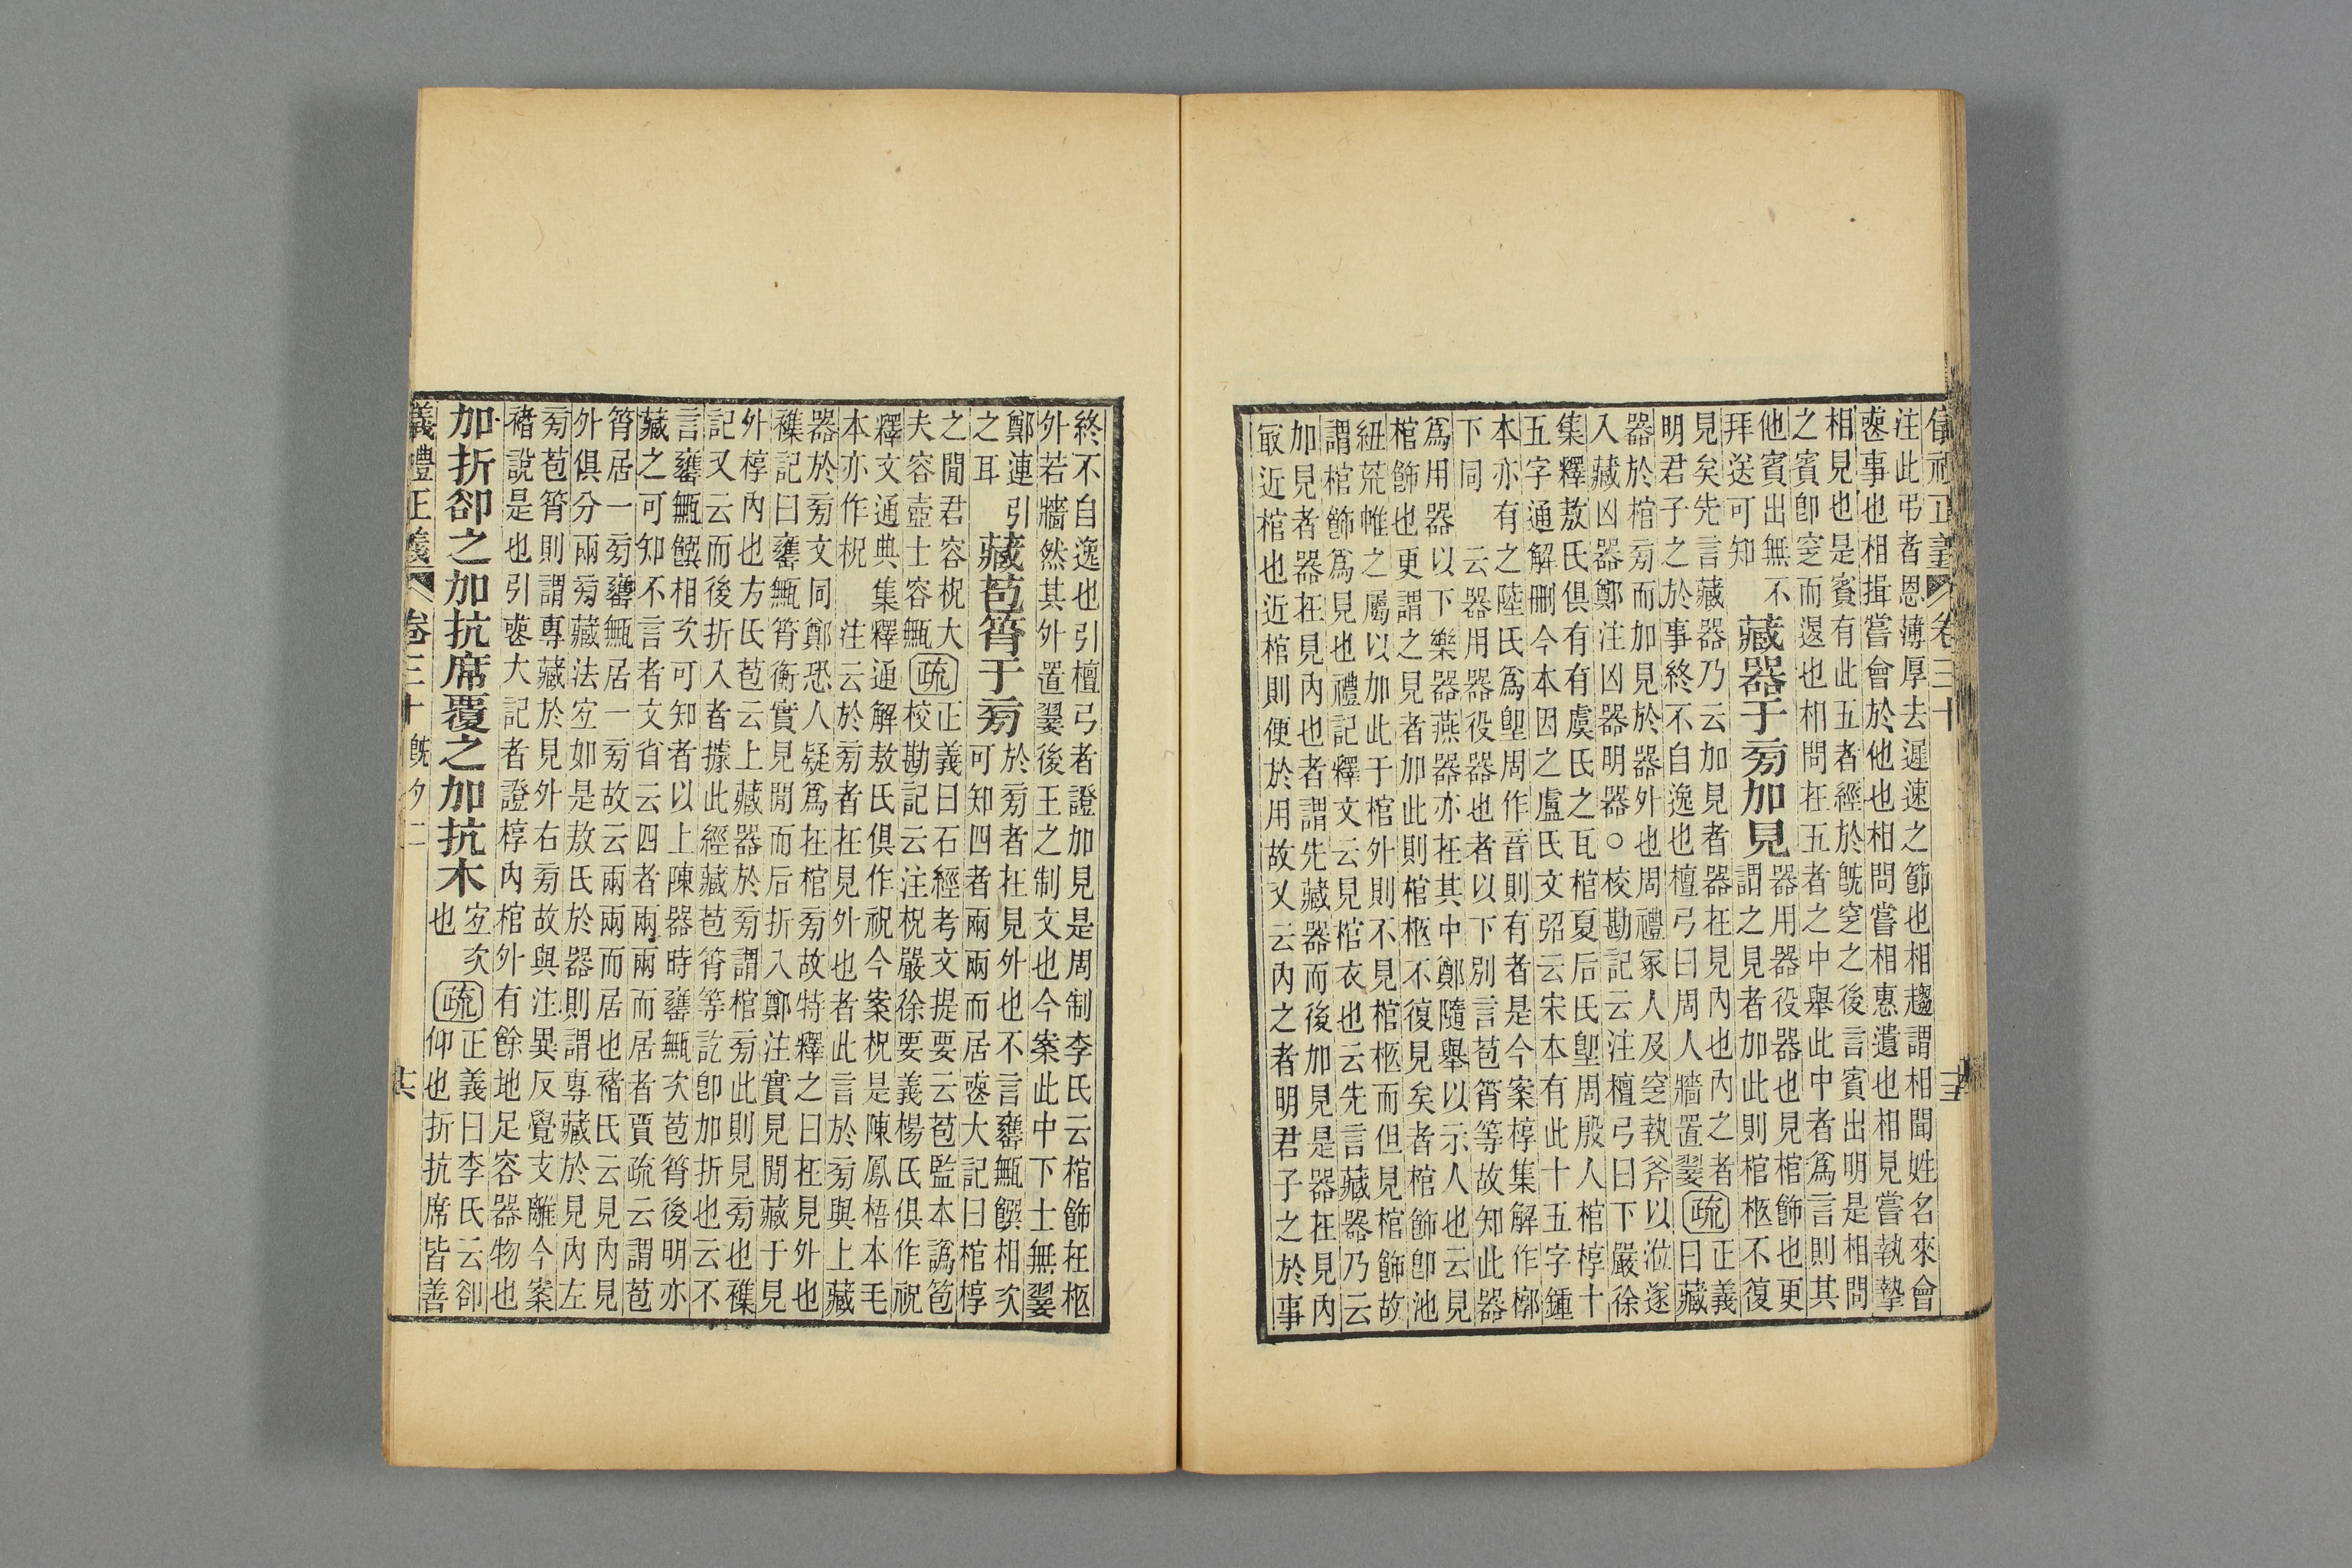 注此弔者恩薄厚去遲速之節也相趨謂相聞姓名來會
喪事也相揖嘗會於他也相問嘗相惠遺也相見嘗執摯
相見也是賓有此五者經於旣窆之後言賓出明是相問
之賓卽窆而退也相問在五者之中舉此中者爲言則其
他賓出無不
拜送可知
藏器于旁加見
器用器役器也見棺飾也更
謂之見者加此則棺柩不復
見矣先言藏器乃云加見者器在見內也內之者
明君子之於事終不自逸也檀弓曰周人牆置翣
疏
正義
曰藏
器於棺旁而加見於器外也周禮冢人及窆執斧以涖遂
入藏凶器鄭注凶器明器○校勘記云注檀弓曰下嚴徐
集釋敖氏俱有有虞氏之瓦棺夏后氏堲周殷人棺椁十
五字通解刪今本因之盧氏文弨云宋本有此十五字鍾
本亦有之陸氏爲堲周作音則有者是今案椁集解作槨
下同　云器用器役器也者以下別言苞筲等故知此器
爲用器以下樂器燕器亦在其中鄭隨舉以示人也云見
棺飾也更謂之見者加此則棺柩不復見矣者棺飾卽池
紐荒帷之屬以加此于棺外則不見棺柩而但見棺飾故
謂棺飾爲見也禮記釋文云見棺衣也云先言藏器乃云
加見者器在見內也者謂先藏器而後加見是器在見內
冣近棺也近棺則便於用故又云內之者明君子之於事
終不自逸也引檀弓者證加見是周制李氏云棺飾在柩
外若牆然其外置翣後王之制文也今案此中下士無翣
鄭連引
之耳
藏苞筲于旁
於旁者在見外也不言罋甒饌相次
可知四者兩兩而居喪大記曰棺椁
之閒君容柷大
夫容壺士容甒
疏
正義曰石經考文提要云苞監本譌笣
校勘記云注柷嚴徐要義楊氏俱作祝
釋文通典集釋通解敖氏俱作祝今案柷是陳鳳梧本毛
本亦作柷　注云於旁者在見外也者此言於旁與上藏
器於旁文同鄭恐人疑爲在棺旁故特釋之曰在見外也
襍記曰罋甒筲衡實見閒而后折入鄭注實見閒藏于見
外椁內也方氏苞云上藏器於旁謂棺旁此則見旁也襍
記又云而後折入者據此經藏苞筲等訖卽加折也云不
言罋甒饌相次可知者以上陳器時罋甒次苞筲後明亦
藏之可知不言者文省云四者兩兩而居者賈疏云謂苞
筲居一旁罋甒居一旁故云兩兩而居也褚氏云見內見
外俱分兩旁藏法宐如是敖氏於器則謂專藏於見內左
旁苞筲則謂專藏於見外右旁故與注異反覺支離今案
褚說是也引喪大記者證椁內棺外有餘地足容器物也
加折卻之加抗席覆之加抗木
宐次
也
疏
正義曰李氏云卻
仰也折抗席皆善
儀禮正義　卷三十　旣夕二